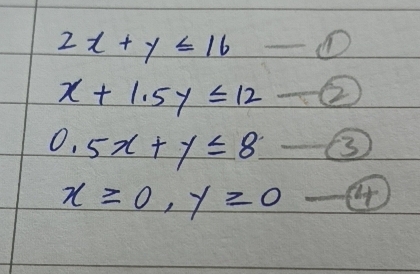 2x + y ≤ 16 — ①
x + 1.5y ≤ 12 — ②
0.5x + y ≤ 8 — ③
x ≥ 0, y ≥ 0 — ④